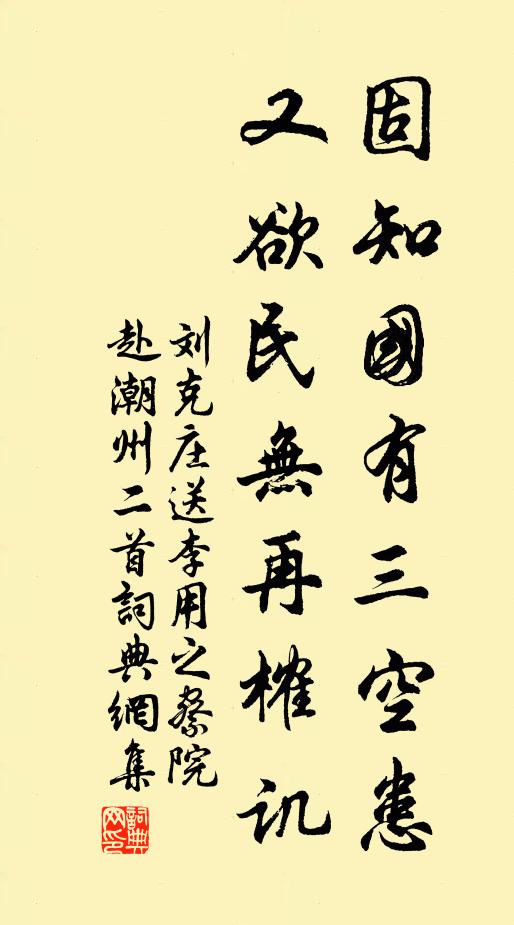 固知國有三空患
又欲民無再榷讥
刘克庄送李用之察院
赴潮州二首詞典網集
詞典
网印